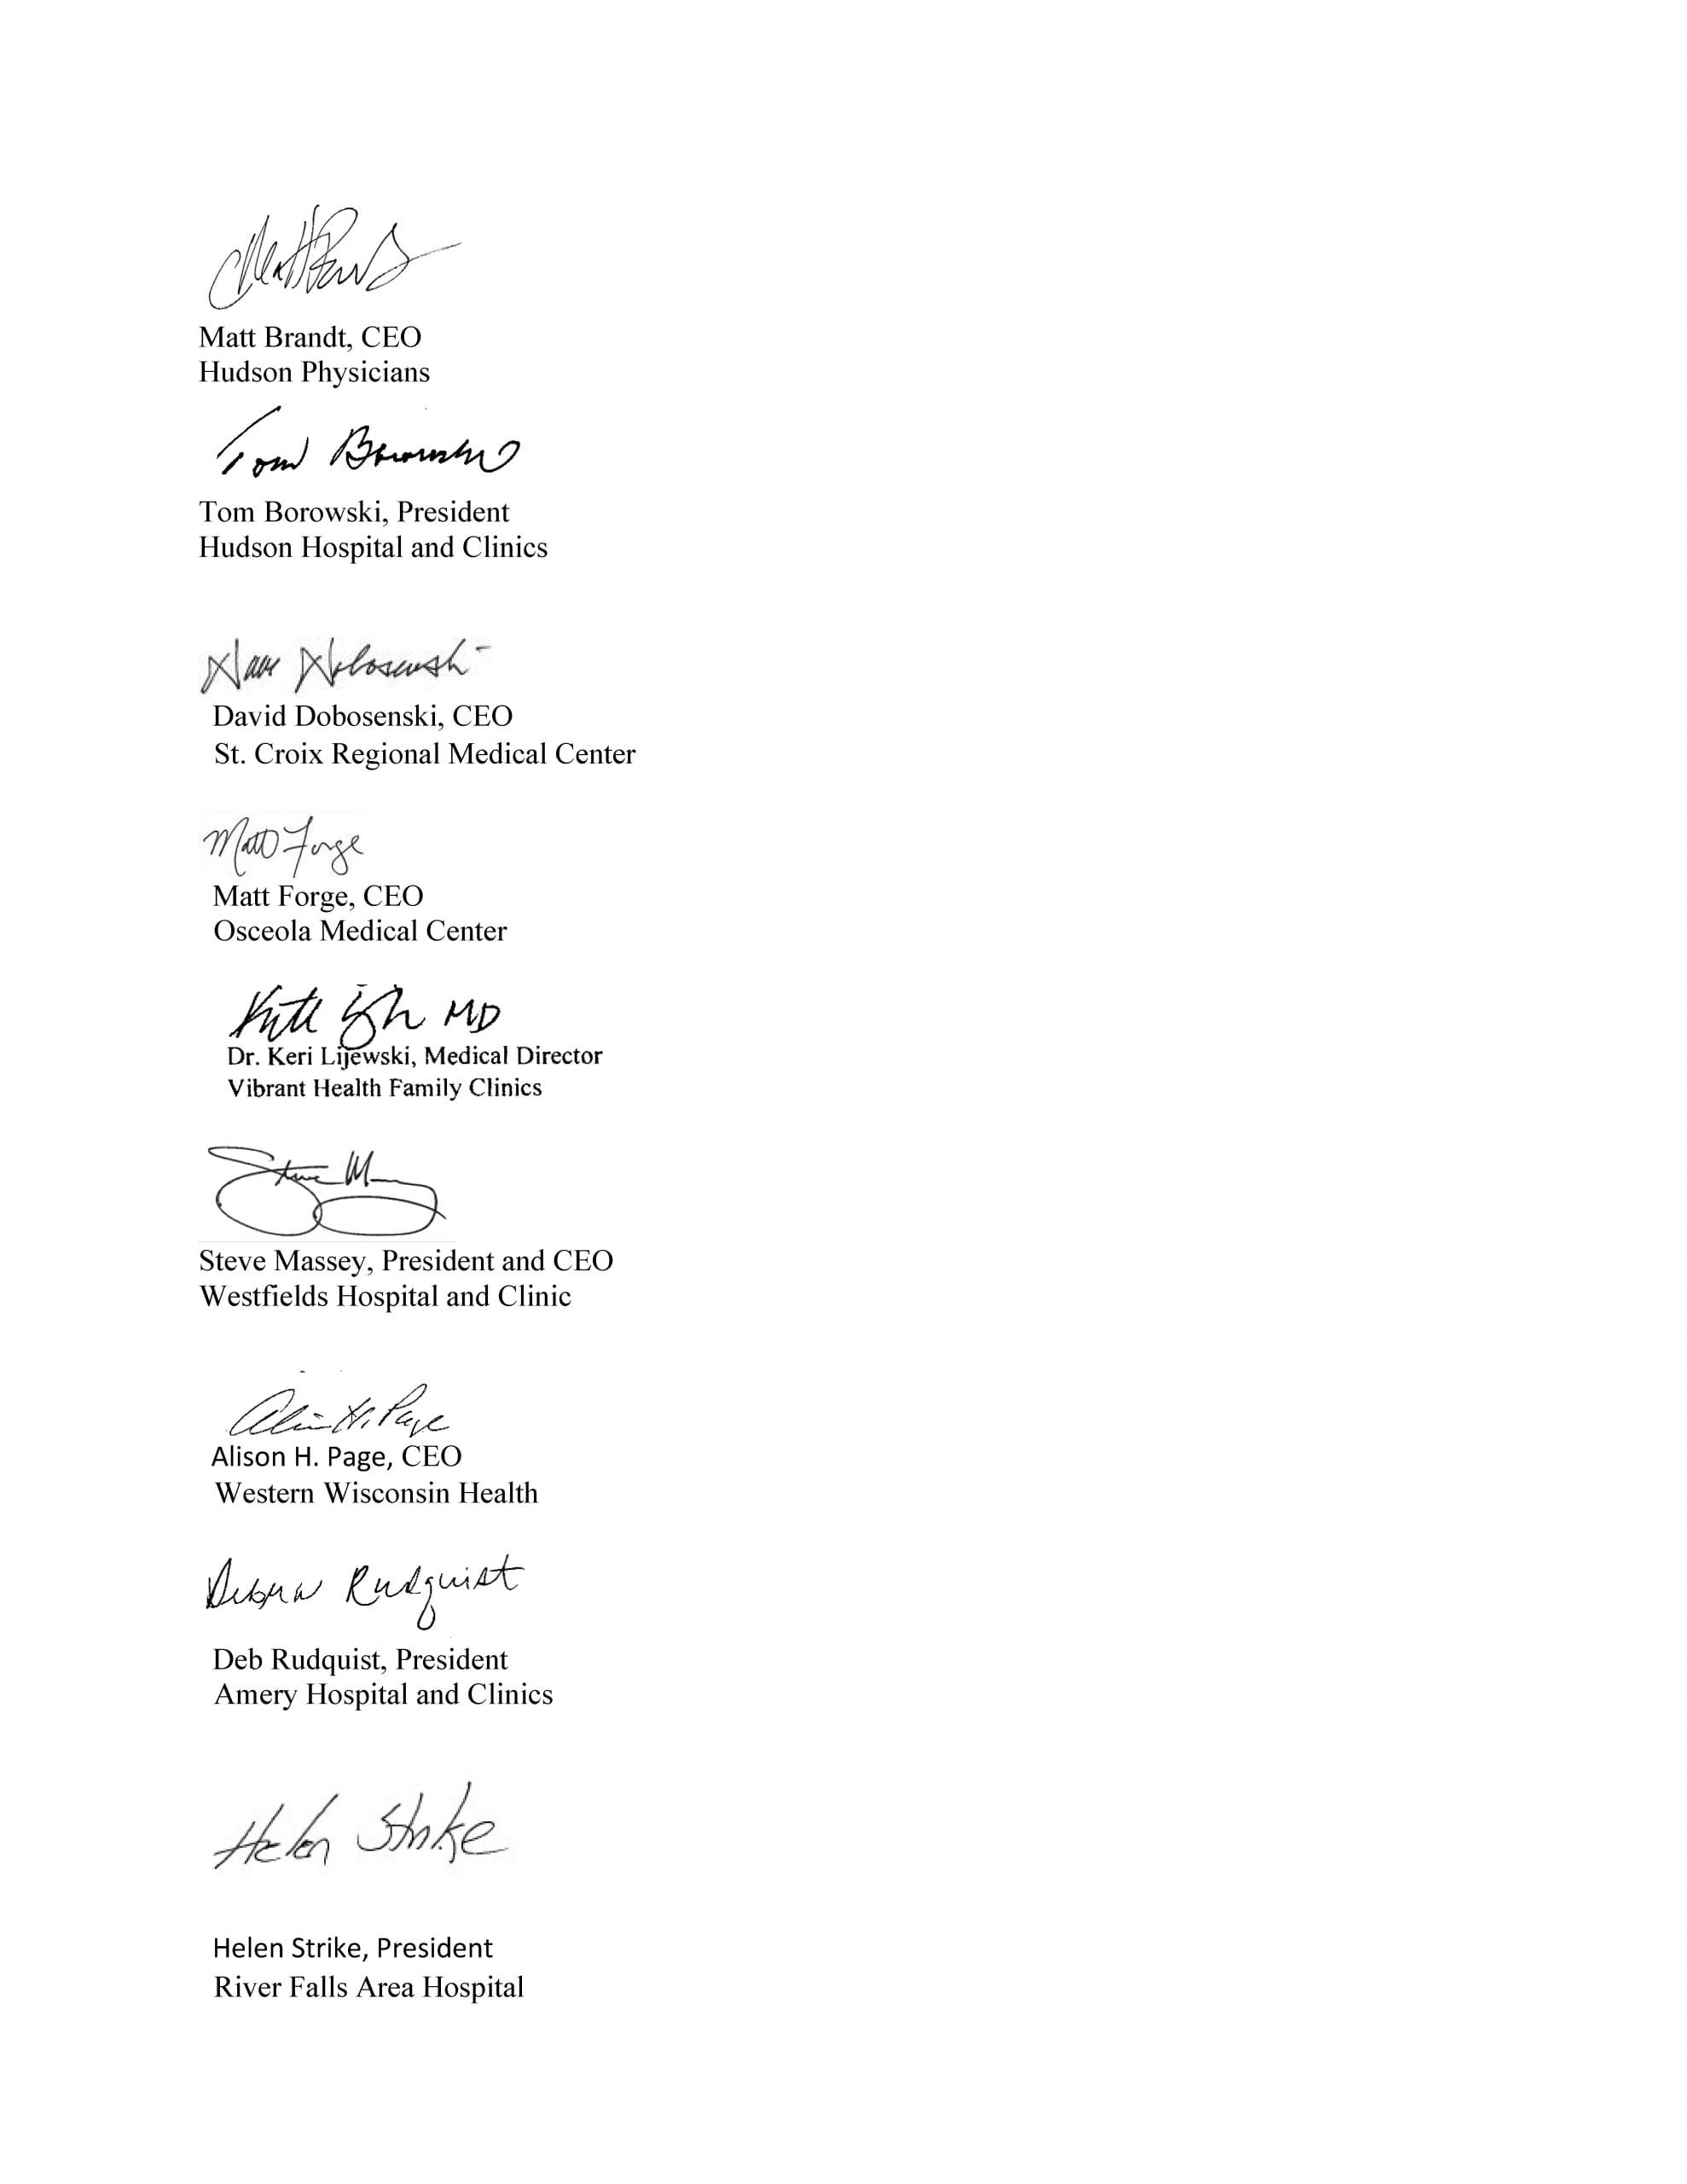 Matt Brandt, CEO
Hudson Physicians
Tom Borowski
Tom Borowski, President
Hudson Hospital and Clinics
David Dobosenski, CEO
St. Croix Regional Medical Center
Matt Forge
Matt Forge, CEO
Osceola Medical Center
MD
Dr. Keri Lijewski, Medical Director
Vibrant Health Family Clinics
Steve
Steve Massey, President and CEO
Westfields Hospital and Clinic
Alison H. Page
Alison H. Page, CEO
Western Wisconsin Health
Debra Rudquist
Deb Rudquist, President
Amery Hospital and Clinics
Helen Strike
Helen Strike, President
River Falls Area Hospital